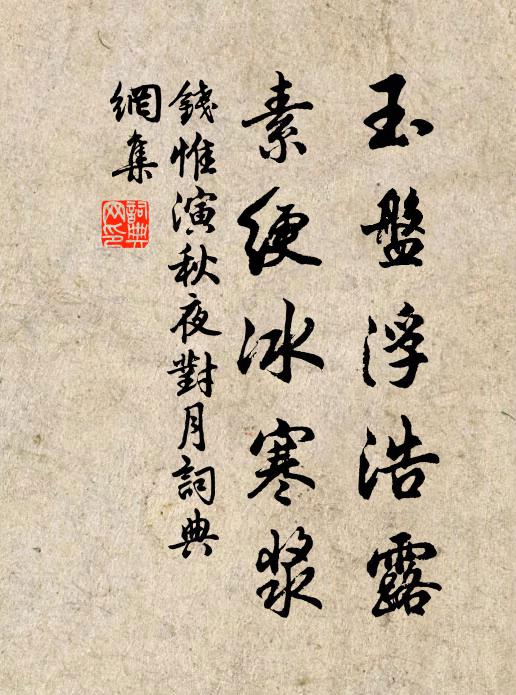 玉盤浮浩露
素綆冰寒漿
錢惟演秋夜對月詞典
網集
詞典
网印